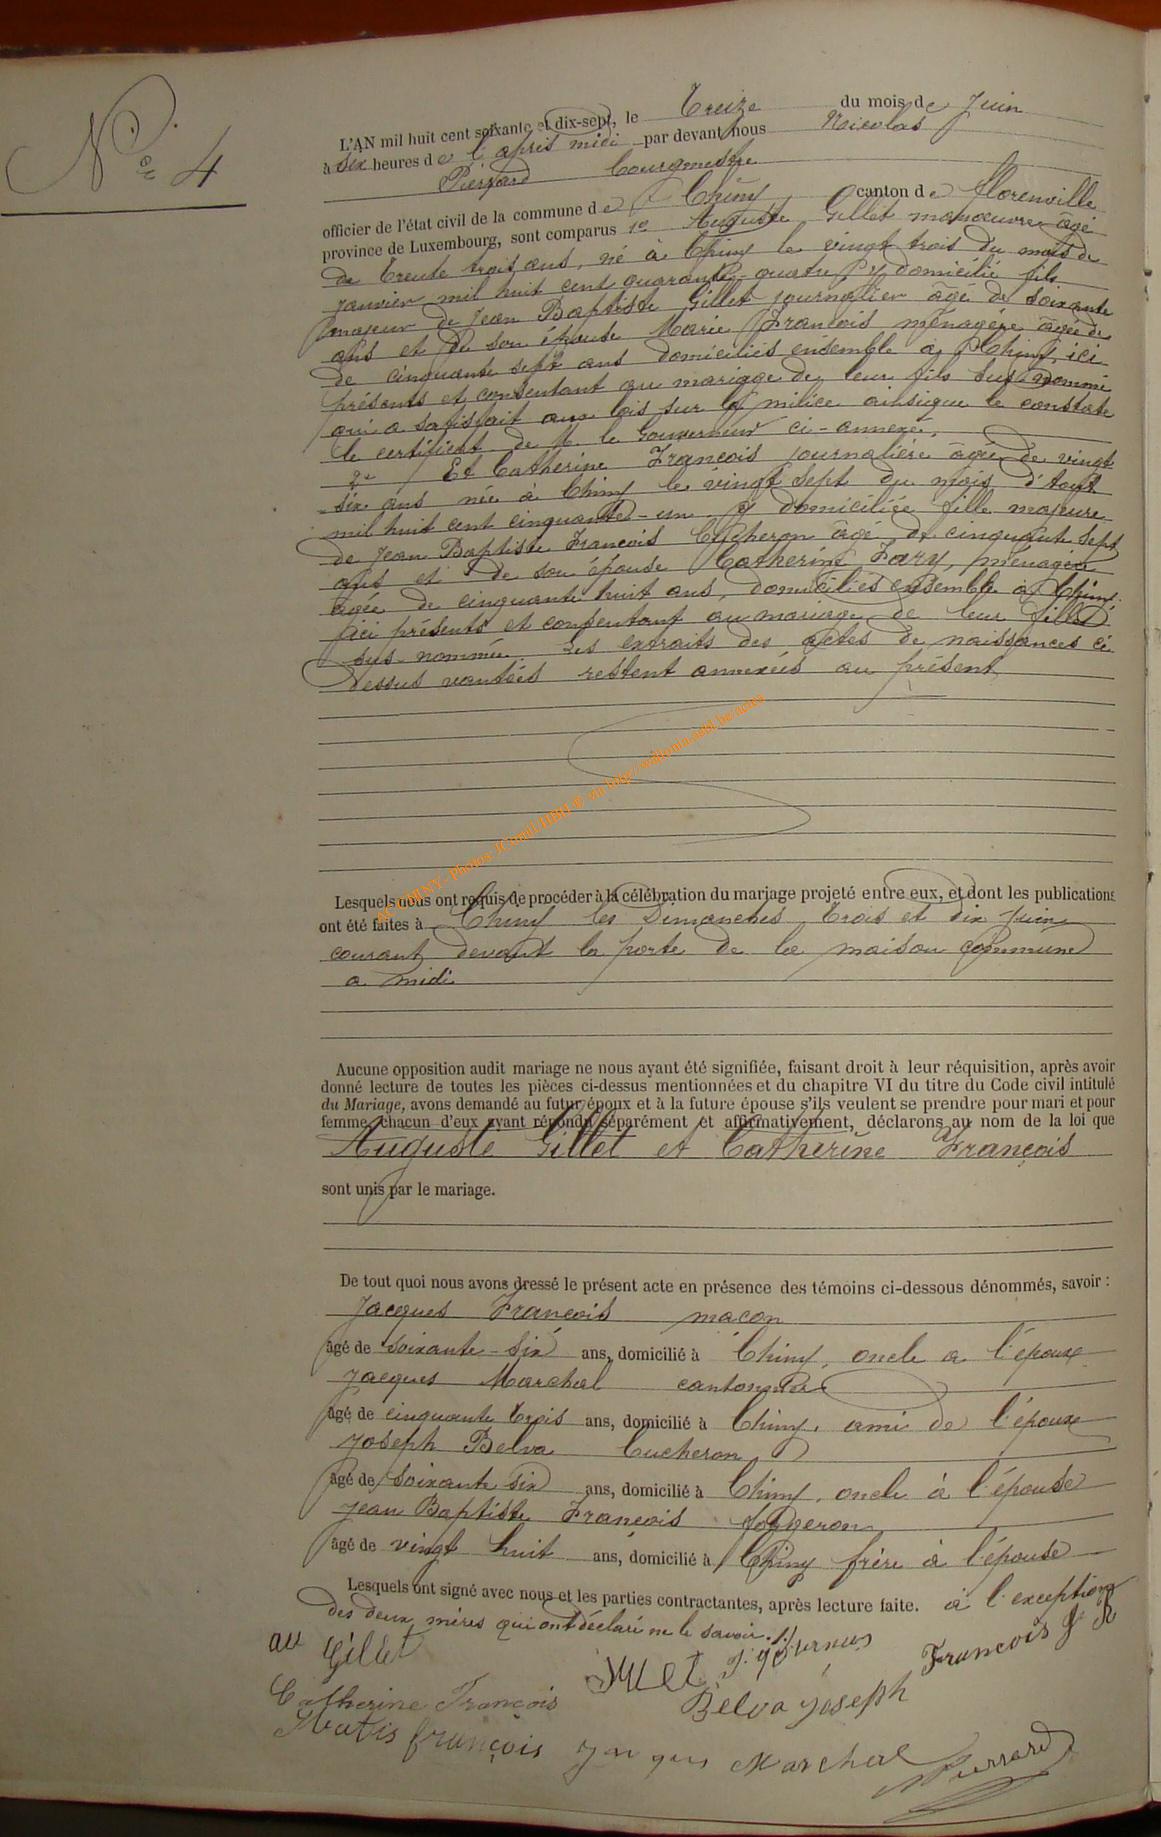 N.° 4
L'AN mil huit cent soixante et dix-sept, le Treize du mois de Juin
à six heures de l'après midi par devant nous Nicolas
Pierrard bourgmestre
officier de l'état civil de la commune de Chiny canton de florenville
province de Luxembourg, sont comparus 1° Auguste Gillet manoeuvre âgé
de trente trois ans, né à Chiny le vingt trois du mois de
janvier mil huit cent quarante-quatre y domicilié fils
majeur de Jean Baptiste Gillet journalier âgé de soixante
ans et de son épouse Marie Francois ménagère âgée de
de cinquante sept ans domiciliés ensemble à Chiny, ici
présents et consentant au mariage de leur fils sus-nommé
qui a satisfait aux lois sur la milice ainsique le constate
le certificat de M. le Gouverneur ci-annexé.
2° Et Catherine Francois journalière âgée de vingt
six ans née à Chiny le vingt sept du mois d'Août
mil huit cent cinquante-un y domiciliée fille majeure
de Jean Baptiste Francois âgé de cinquante sept
ans et de son épouse Catherine Jary, ménagère
agée de cinquante huit ans, domiciliés ensemble à Chiny
ici présents et consentant au mariage de leur fille
sus-nommée. Les extraits des actes de naissances ci
dessus vantées restent annexés au présent
ACT CHINY - Photos
Lesquels nous ont requis de procéder à la célébration du mariage projeté entre eux, et dont les publications
ont été faites à Chiny les Dimanches trois et dix Juin
courant devant la porte de la maison commune
a midi
Aucune opposition audit mariage ne nous ayant été signifiée, faisant droit à leur réquisition, après avoir
donné lecture de toutes les pièces ci-dessus mentionnées et du chapitre VI du titre du Code civil intitulé
du Mariage, avons demandé au futur époux et à la future épouse s'ils veulent se prendre pour mari et pour
femme, chacun d'eux ayant répondu séparément et affirmativement, déclarons au nom de la loi que
Auguste Gillet et Catherine François
sont unis par le mariage.
De tout quoi nous avons dressé le présent acte en présence des témoins ci-dessous dénommés, savoir :
Jacques Francois macon
âgé de soixante-six ans, domicilié à Chiny, oncle a l'époux
Jacques Marchal cantonnier
âgé de cinquante trois ans, domicilié à Chiny, ami de l'époux
Joseph Belva bucheron
âgé de soixante six ans, domicilié à Chiny, oncle à l'épouse
Jean Baptiste Francois forgeron
âgé de vingt huit ans, domicilié à Chiny frère à l'épouse
Lesquels ont signé avec nous et les parties contractantes, après lecture faite. à l'exception
des deux mères qui ont déclaré ne le savoir.
au Gillet
Francois J B
Catherine François
Belva joseph
françois
Marchal
Pierrard